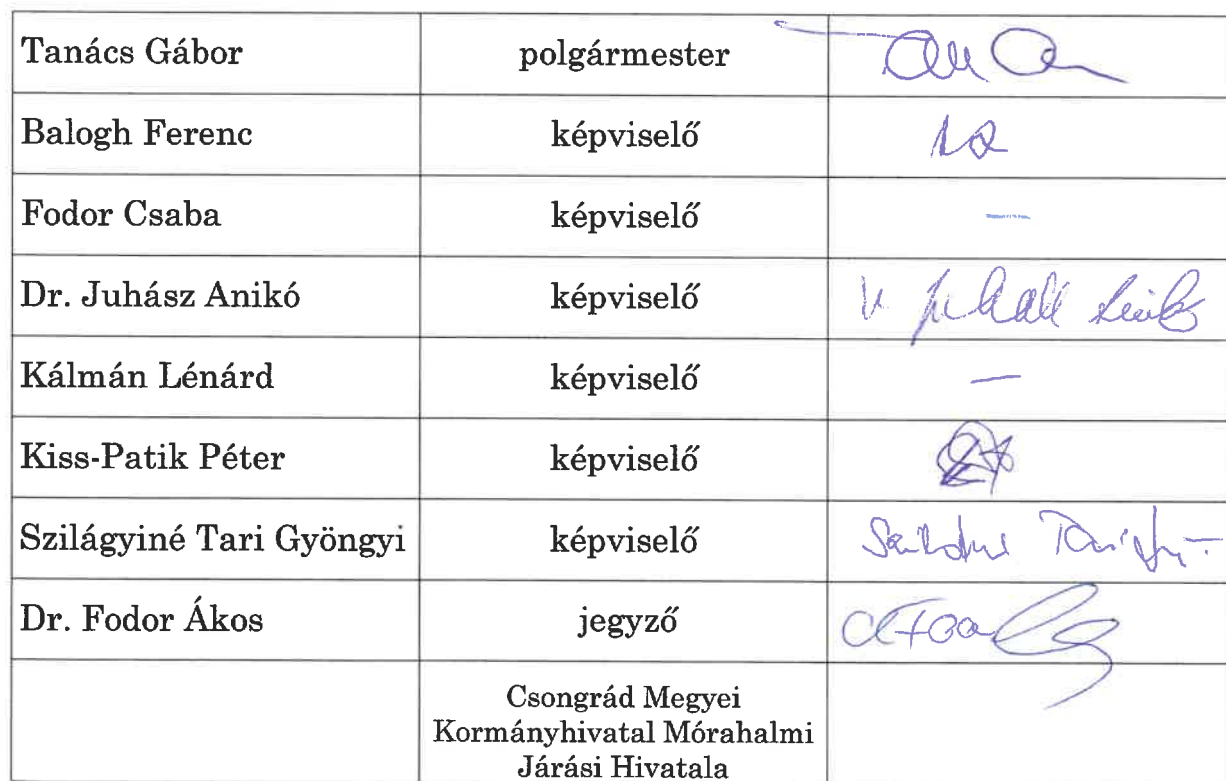 Tanács Gábor polgármester
Balogh Ferenc képviselő
Fodor Csaba képviselő —
Dr. Juhász Anikó képviselő
Kálmán Lénárd képviselő —
Kiss-Patik Péter képviselő
Szilágyiné Tari Gyöngyi képviselő
Dr. Fodor Ákos jegyző
Csongrád Megyei
Kormányhivatal Mórahalmi
Járási Hivatala